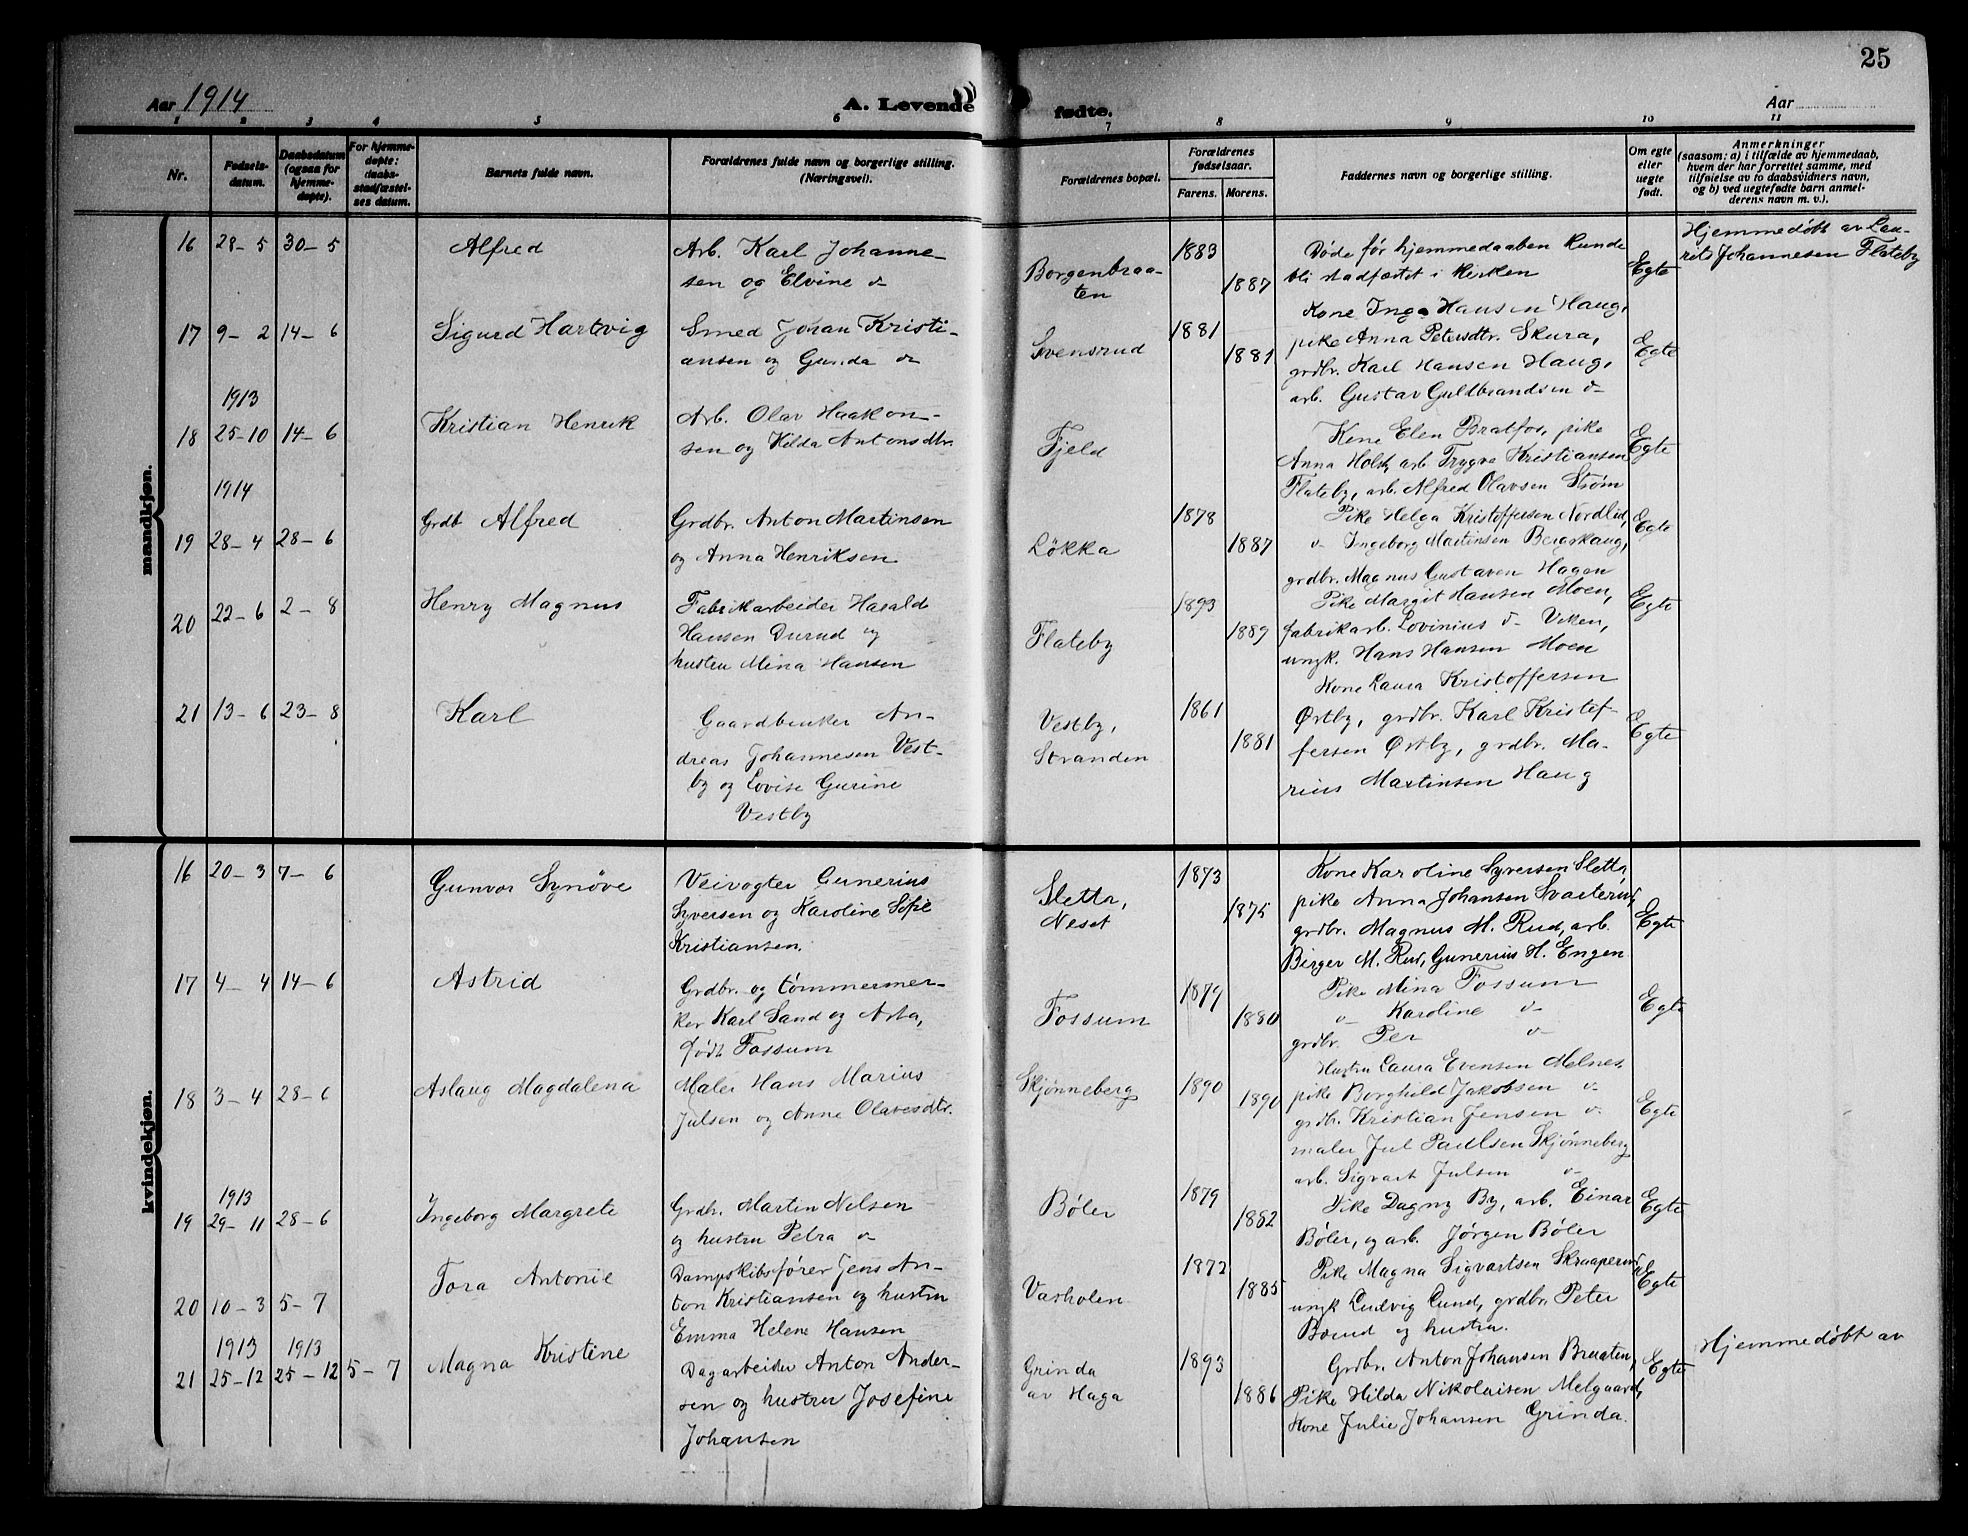 25
Aar 1914
A. Levende fødte.
Aar
1 2 3 4 5 6 7 8 9 10 11
Nr.
Fødsels-
datum.
Daabsdatum
(ogsaa for
hjemme-
døpte).
For hjemme-
døpte:
daabs-
stadfæstel-
ses datum.
Barnets fulde navn.
Forældrenes fulde navn og borgerlige stilling.
(Næringsvei).
Forældrenes bopæl.
Forældrenes
fødselsaar.
Farens. Morens.
Faddernes navn og borgerlige stilling.
Om egte
eller
uegte
født.
Anmerkninger
(saasom: a) i tilfælde av hjemmedaab,
hvem der har forrettet samme, med
tilføielse av to daabsvidners navn,
og b) ved uegtefødte barn anmel-
derens navn m. v.).
mandkjøn.
16 28-5 30-5
Alfred
Arb. Karl Johanne-
sen og Elvine d-
Borgenbraa-
ten
1883
1887
Døde før hjemmedaaben kunde
bli stadfæstet i kirken
Egte
Hjemmedøbt av Lau-
rits Johannesen Flateby
17 9-2 14-6
Sigurd Hartvig
Smed Johan Kristi-
ansen og Gunda d-
Svensrud
1881
1881
Kone Inga Hansen Haug,
pike Anna Petersdtr. Skura,
grdbr. Karl Hansen Haug,
arb. Gustav Guldbrandsen d-
Egte
1913
18 25-10 14-6
Kristian Henrik
Arb. Olav Haakon-
sen og Hilda Antonsdtr.
Fjeld
Kone Elen Bratfos, pike
Anna Holst, arb. Trygve Kristiansen
Flateby, arb. Alfred Olavsen Strøm
Egte
1914
19 28-4 28-6
Grdb Alfred
Grdbr. Anton Martinsen
og Anna Henriksen
Løkka
1878
1887
Pike Helga Kristoffersen Nordlid,
d- Ingeborg Martinsen Bergskaug,
grdbr. Magnus Gustavsen Hagen
Egte
20 22-6 2-8
Henry Magnus
Fabrikarbeider Harald
Hansen Durud og
hustru Mina Hansen
Flateby
1893
1889
Pike Margit Hansen Moen,
fabrikarb. Lovinius d- Viken,
ungk. Hans Hansen Moen
Egte
21 13-6 23-8
Karl
Gaardbruker An-
dreas Johannesen Vest-
by og Lovise Gurine
Vestby
Vestby,
Stranden
1861
1881
Kone Laura Kristoffersen
Ørtby, grdbr. Karl Kristof-
fersen Ørtby, grdbr. Ma-
rius Martinsen Haug
Egte
kvindekjøn.
16 20-3 7-6
Gunvor Synøve
Veivogter Gunerius
Syversen og Karoline Sofie
Kristiansen.
Sletta,
Neset
1873
1875
Kone Karoline Syversen Sletta,
pike Anna Johansen Svarterud,
grdbr. Magnus M. Rud, arb.
Birger M. Rud, Gunerius H. Engen
Egte
17 4-4 14-6
Astrid
Grdbr. og tømmermer-
ker Karl Sand og Asta,
født Fossum
Fossum
1879
1880
Pike Mina Fossum
d- Karoline d-
grdbr. Per d-
Egte
18 3-4 28-6
Aslaug Magdalena
Maler Hans Marius
Julsen og Anne Olavesdtr.
Skjønneberg
1890
1890
Hustru Laura Evensen Melnes,
pike Borghild Jakobsen d-
grdbr. Kristian Jensen d-
maler Jul Paulsen Skjønneberg
arb. Sigvart Julsen d-
Egte
1913
19 29-11 28-6
Ingeborg Margrete
Grdbr. Martin Nilsen
og hustru Petra d-
Bøler
1879
1882
Pike Dagny By, arb. Einar
Bøler, og arb. Jørgen Bøler
Egte
20 10-3 5-7
Tora Antonie
Dampskibsfører Jens An-
ton Kristiansen og hustru
Emma Helene Hansen
Varholen
1872
1885
Pike Magna Sigvartsen Skraaperud,
ungk Ludvig Lund, grdbr. Peter
Børud og hustru.
Egte
1913 1913
21 25-12 25-12 5-7
Magna Kristine
Dagarbeider Anton Ander-
sen og hustru Josefine
Johansen
Grinda
av Haga
1893
1886
Grdbr. Anton Johansen Braaten,
Pike Hilda Nikolaisen Melgaard,
Kone Julie Johansen Grinda.
Egte
Hjemmedøbt av